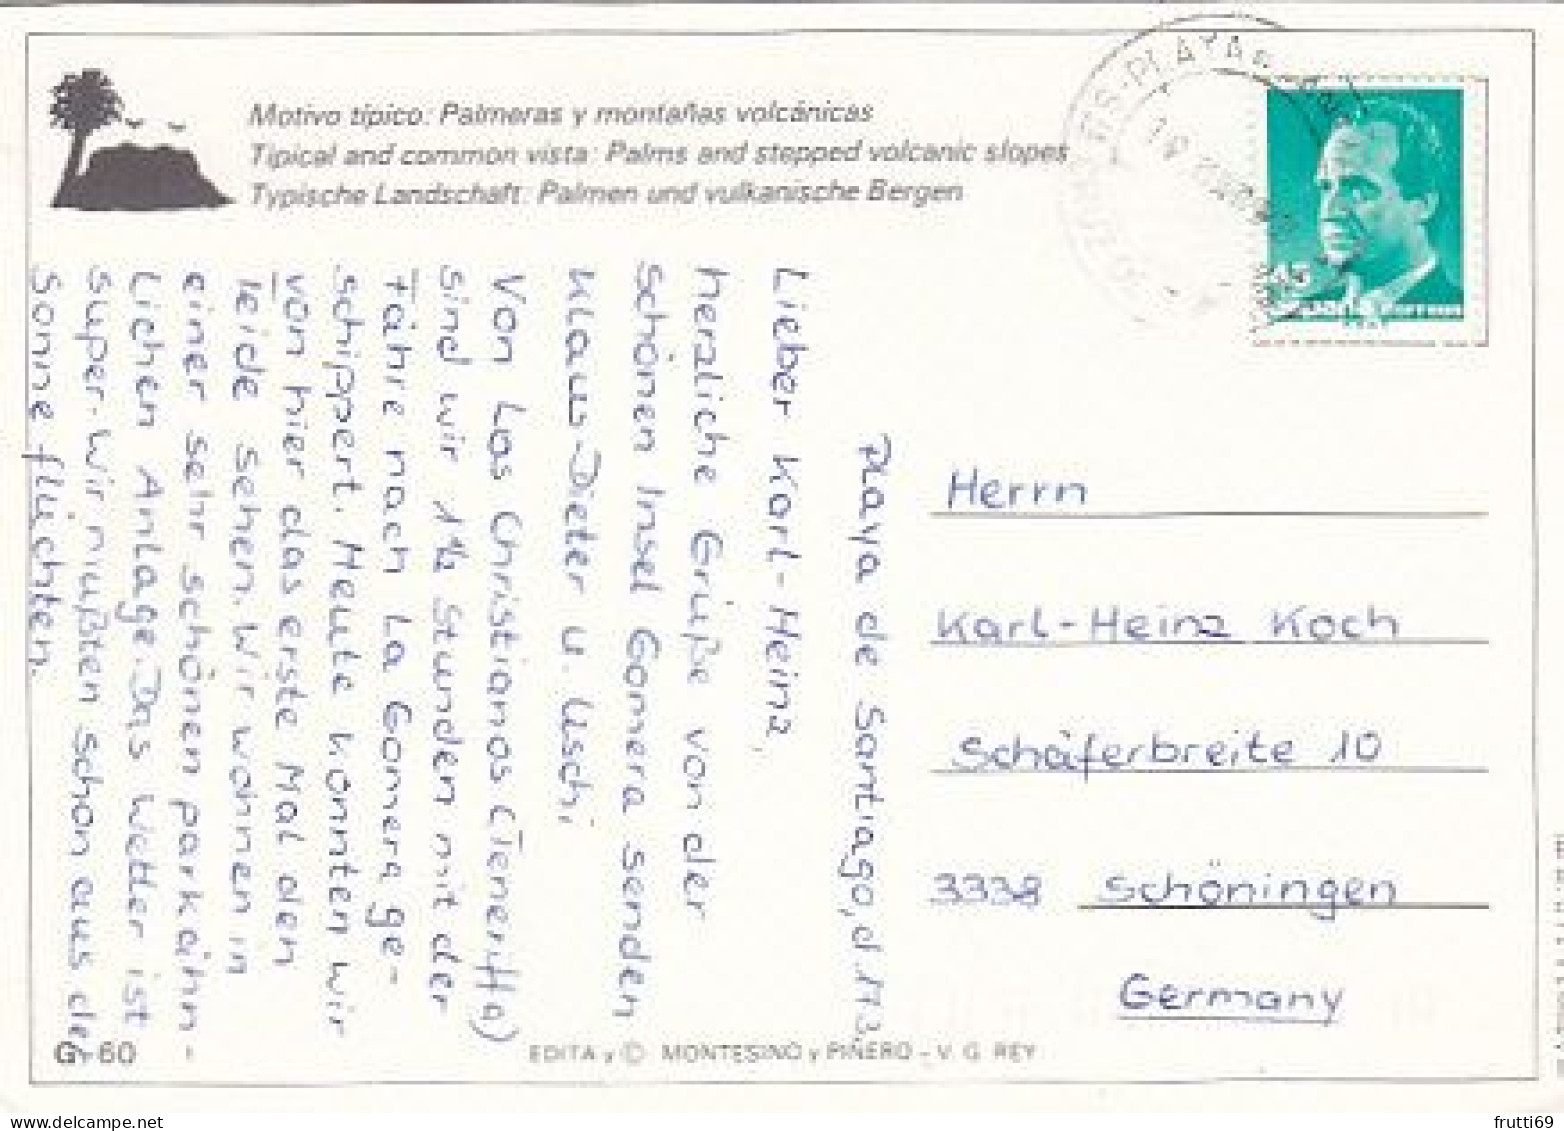 Motivo típico: Palmeras y montañas volcánicas
Tipical and common vista: Palms and stepped volcanic slopes
Typische Landschaft: Palmen und vulkanische Bergen
Playa de Santiago, d.
Lieber Karl-Heinz,
herzliche Grüße von der
schönen Insel Gomera senden
Klaus-Dieter u. Uschi,
Von Los Christianos (Teneriffa)
sind wir 1½ Stunden mit der
Fähre nach La Gomera ge-
schippert. Heute konnten wir
von hier das erste Mal den
Teide sehen. Wir wohnen in
einer sehr schönen parkähn-
lichen Anlage. Das Wetter ist
super. Wir mußten schon aus der
Sonne flüchten.
Herrn
Karl-Heinz Koch
Schäferbreite 10
3338 Schöningen
Germany
PLAYA
45
G-60
EDITA y © MONTESINO y PIÑERO - V. G. REY
frutti69